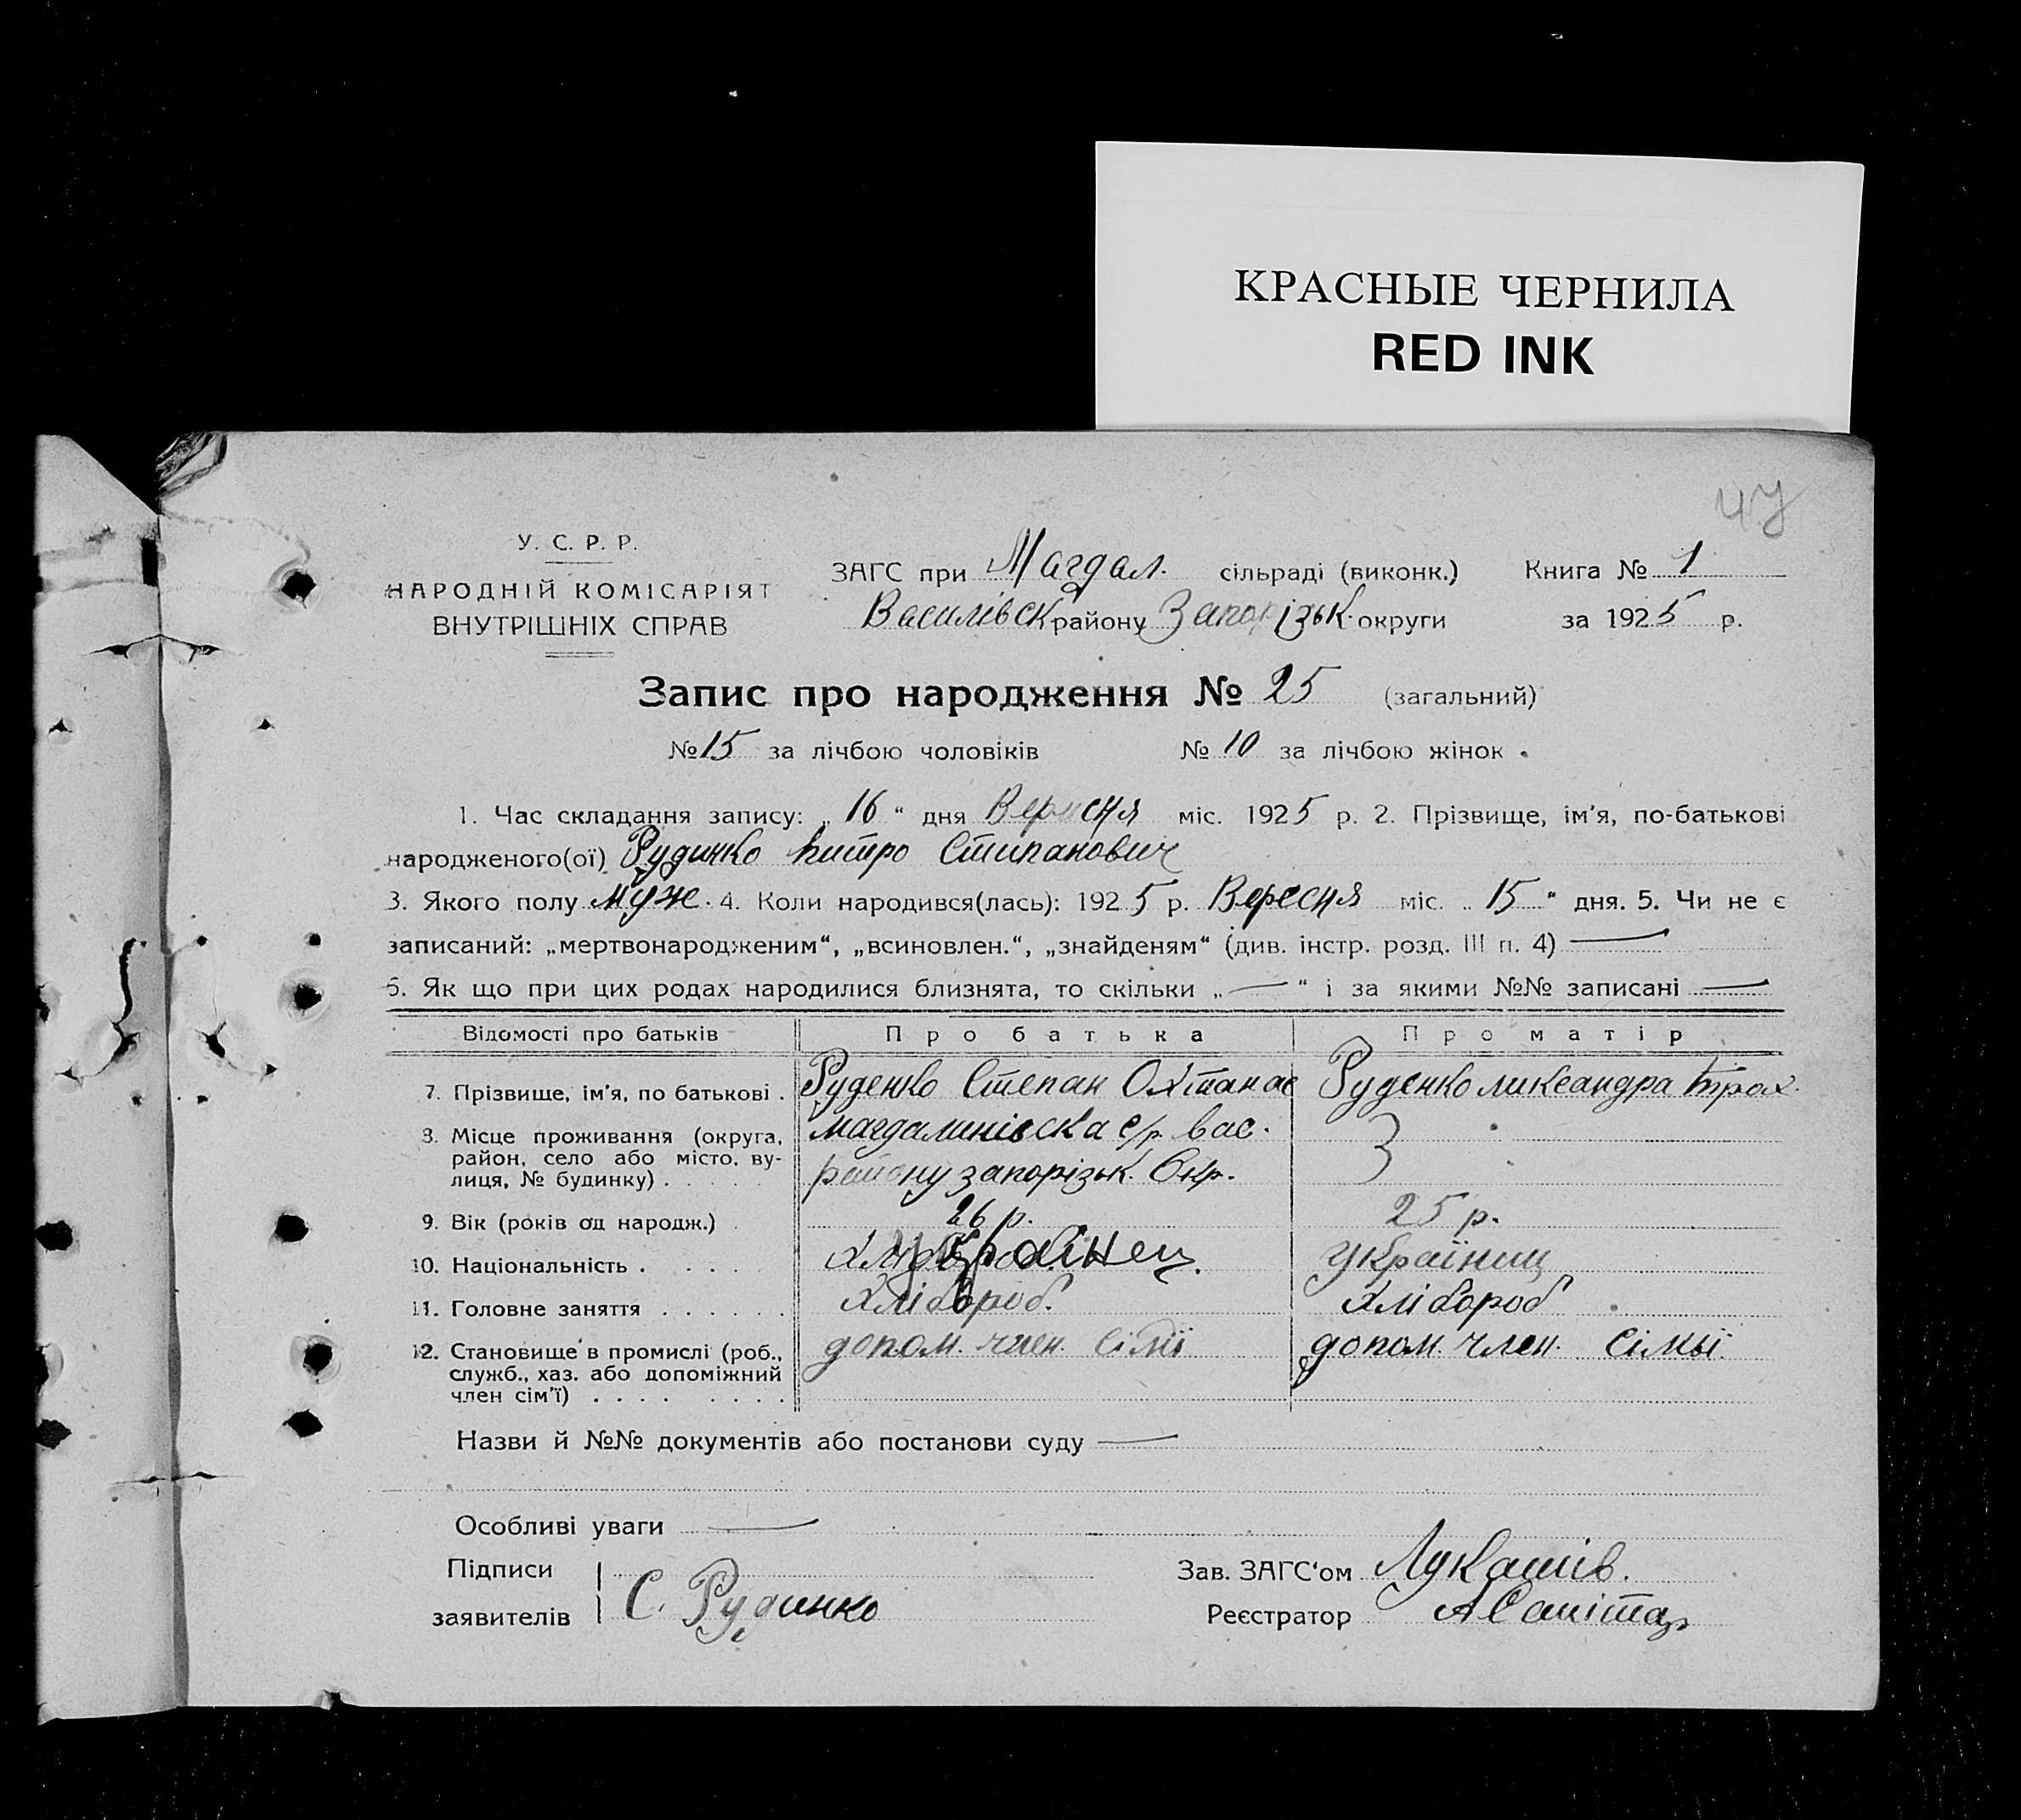 КРАСНЫЕ ЧЕРНИЛА
RED INK
У. С. Р. Р.
НАРОДНІЙ КОМІСАРІЯТ
ВНУТРІШНІХ СПРАВ
ЗАГС при Магдал. сільраді (виконк.) Книга № 1
Василівськ району Запорізьк. округи за 1925 р.
Запис про народження № 25 (загальний)
№ 15 за лічбою чоловіків № 10 за лічбою жінок
1. Час складання запису: „ 16 “ дня Вересня міс. 1925 р. 2. Прізвище, ім'я, по-батькові
народженого(ої) Рудинко Питро Стипанович
3. Якого полу муж. 4. Коли народився(лась): 1925 р. Вересня міс. „ 15 “ дня. 5. Чи не є
записаний: „мертвонародженим“, „всиновлен.“, „знайденям“ (див. інстр. розд. III п. 4) —
6. Як що при цих родах народилися близнята, то скільки „ — “ і за якими №№ записані —
Відомості про батьків Про батька Про матір
7. Прізвище, ім'я, по батькові . Руденко Степан Охтанас Руденко ликсандра трох.
8. Місце проживання (округа, район, село або місто, вулиця, № будинку) . магдалинівска с/р вас.
району запорізьк. Окр.
9. Вік (років од народж.) 26 р. 25 р.
10. Національність . українец україниц
11. Головне заняття хлібороб. хлібороб
12. Становище в промислі (роб., служб., хаз. або допоміжний член сім'ї) допом. член. сімї допом. член. сімьї.
Назви й №№ документів або постанови суду —
Особливі уваги —
Підписи заявителів С. Рудинко
Зав. ЗАГС‘ом Лукашів.
Реєстратор